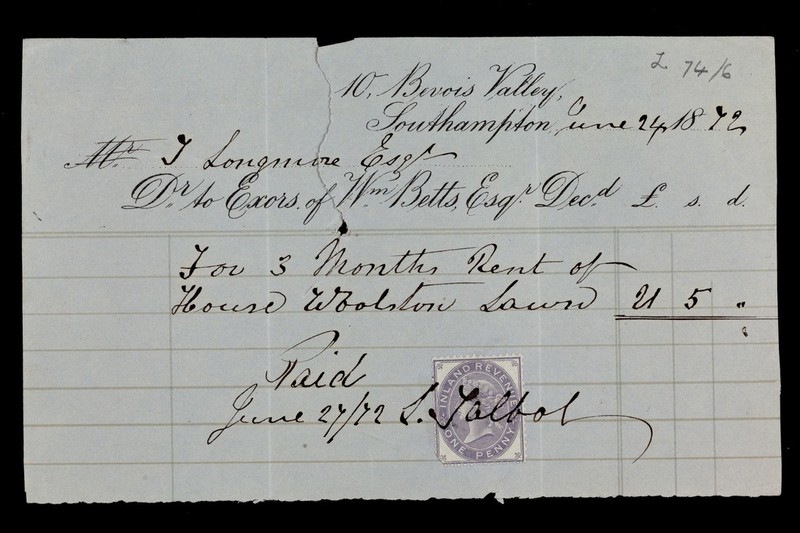 L 74/6
10, Bevois Valley,
Southampton, June 24, 1872
Mr. T Longmore Esqr
Dr. to Exors. of Wm. Betts, Esqr. Decd. £. s. d.
For 3 Months Rent of
House Woolston Lawn 21 5 "
Paid
June 27/72 S. Talbot
INLAND REVENUE
ONE PENNY